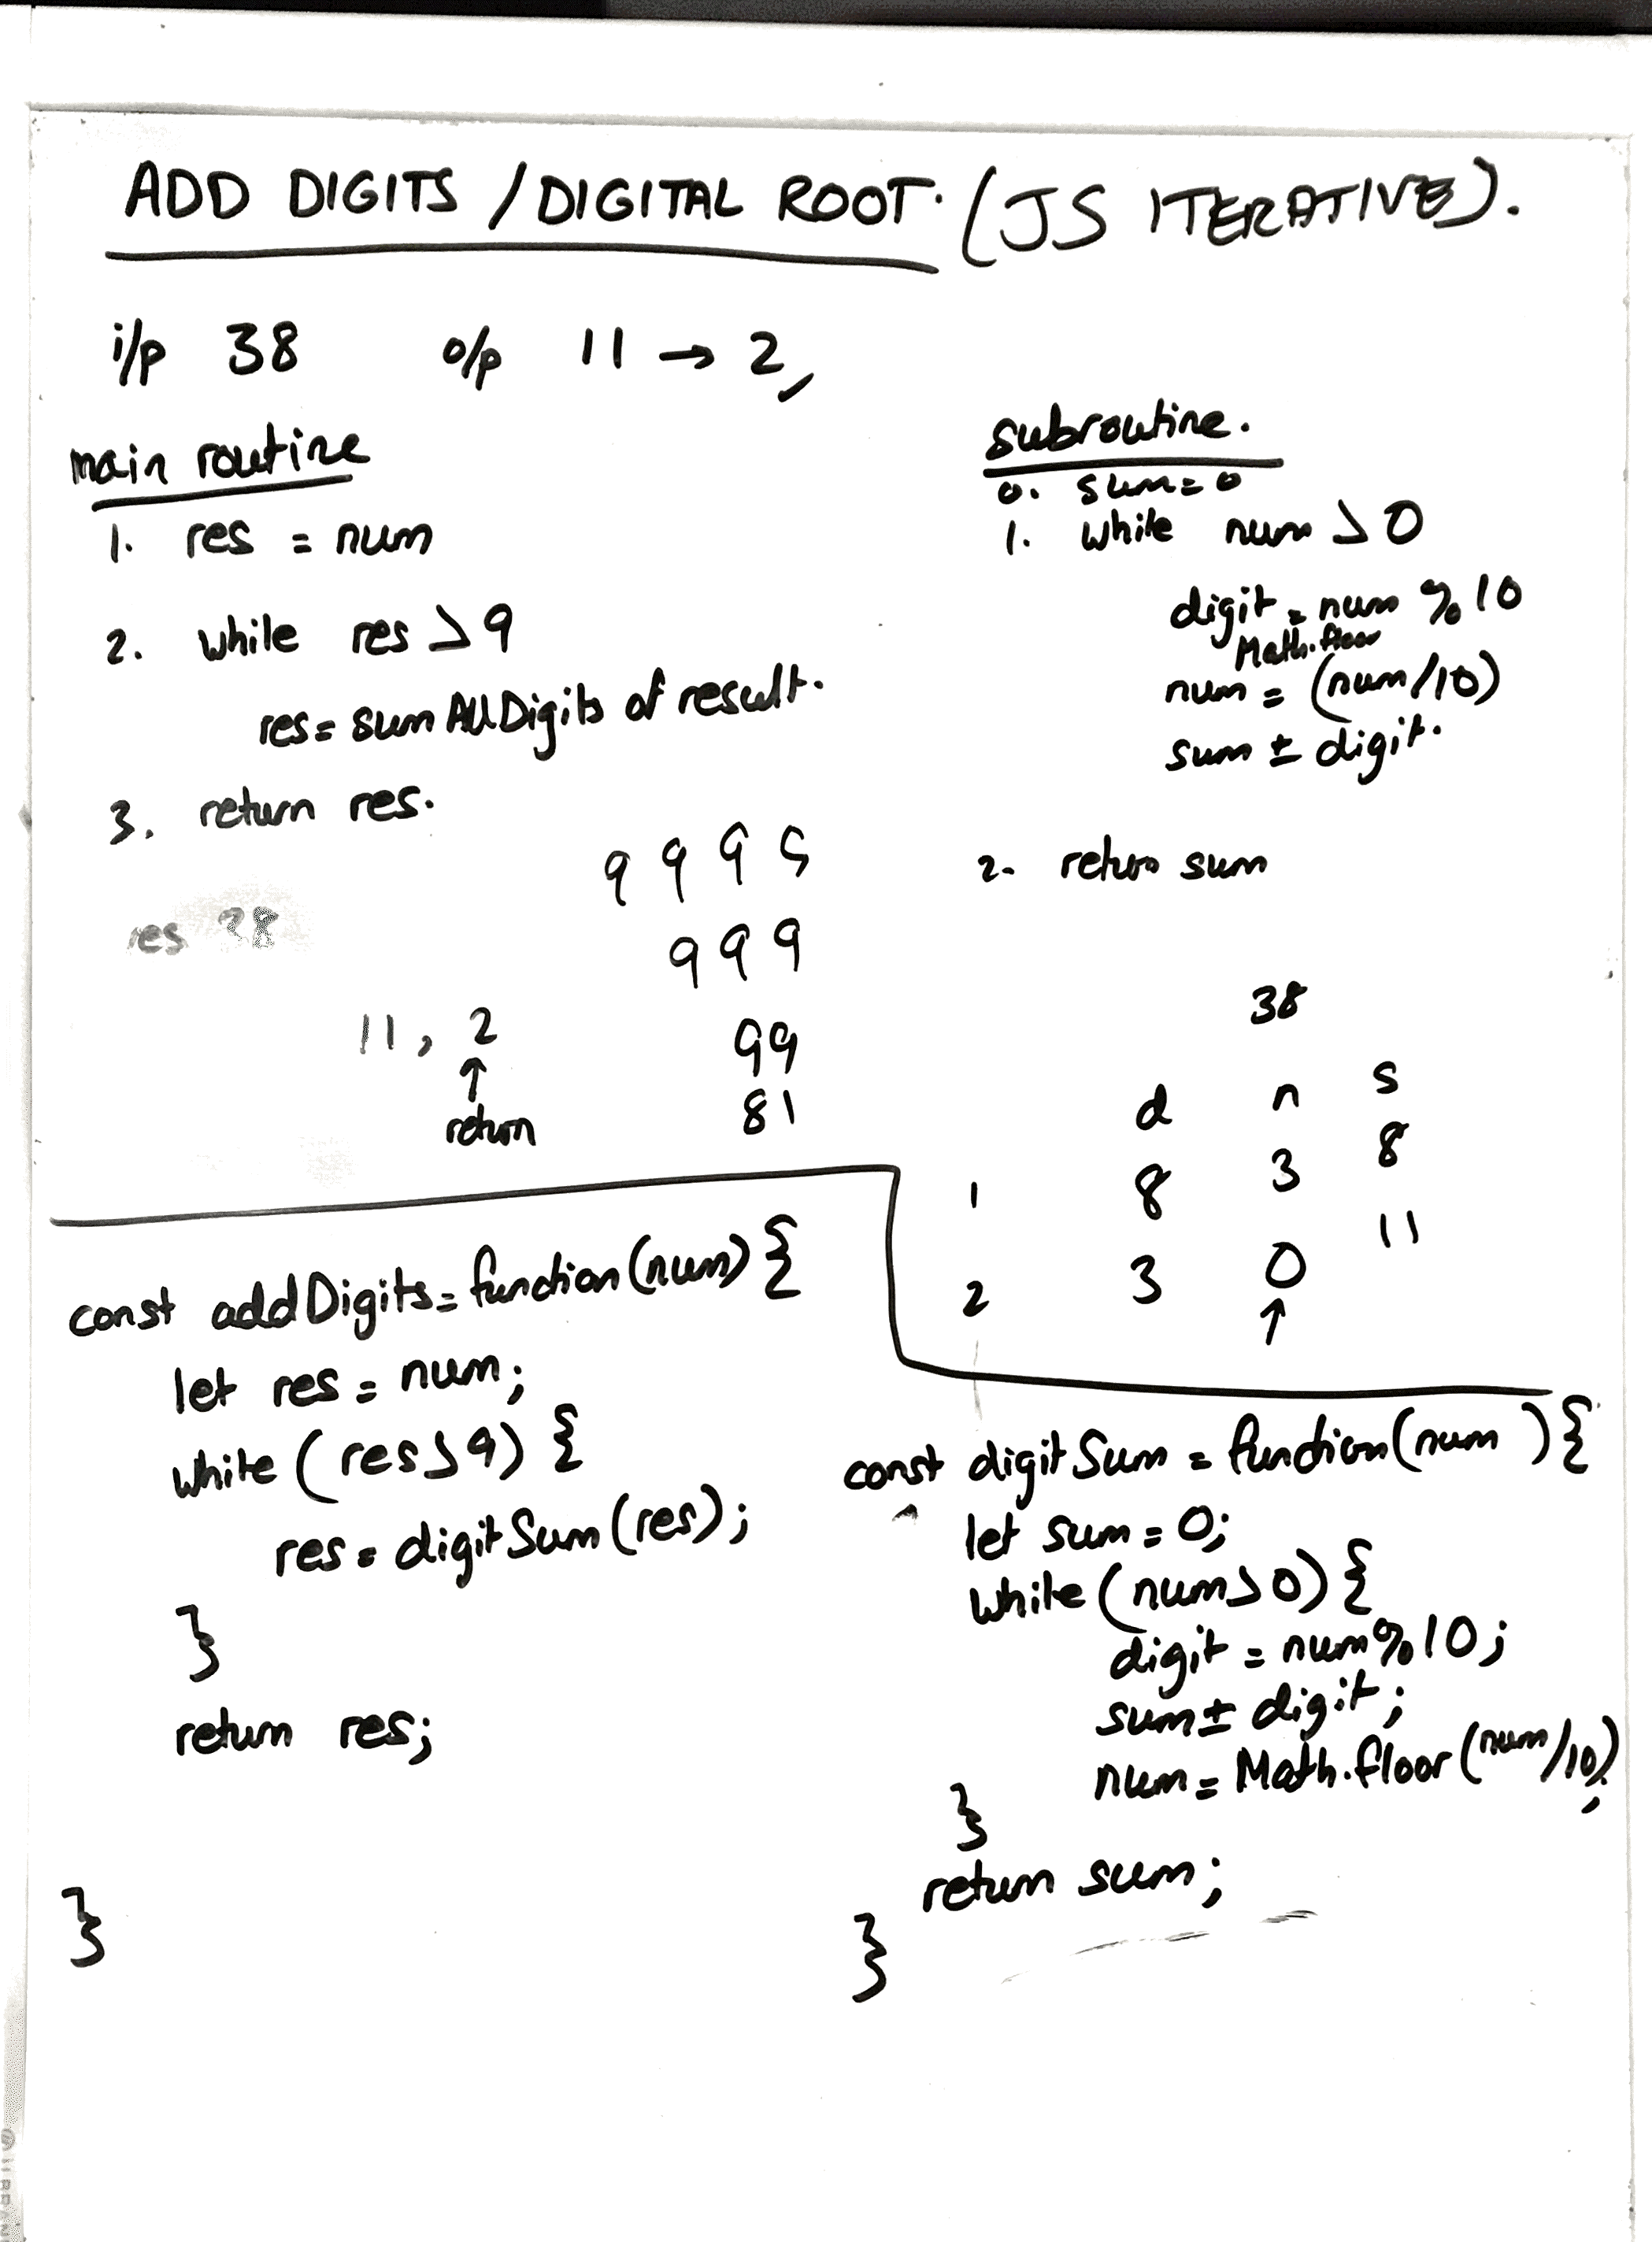 ADD DIGITS / DIGITAL ROOT. (JS ITERATIVE).
i/p 38 o/p 11 → 2,
main routine
1. res = num
2. while res > 9
res = sum All Digits of result.
3. return res.
res 38
11, 2
↑
return
9 9 9 9
9 9 9
99
81
subroutine.
0. sum = 0
1. while num > 0
digit = num % 10
Math.floor
num = (num/10)
sum += digit.
2. return sum
38
d n s
1 8 3 8
2 3 0 11
↑
const addDigits = function(num) {
let res = num;
while (res > 9) {
res = digitSum(res);
}
return res;
}
const digitSum = function(num) {
let sum = 0;
while (num > 0) {
digit = num % 10;
sum += digit;
num = Math.floor(num/10);
}
return sum;
}